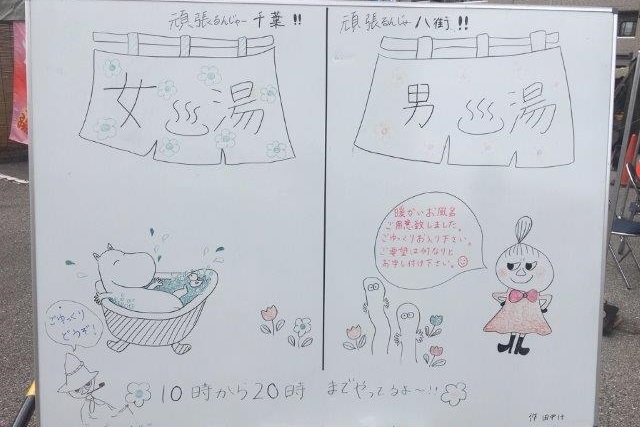 頑張るんじゃー千葉!!
女湯
頑張るんじゃ八街!!
男湯
暖かいお風呂
ご用意致しました。
ごゆっくりお入り下さい。
ご要望は何なりと
お申し付け下さい。
ごゆっくり
どうぞ!
10時から20時 までやってるよ〜!!